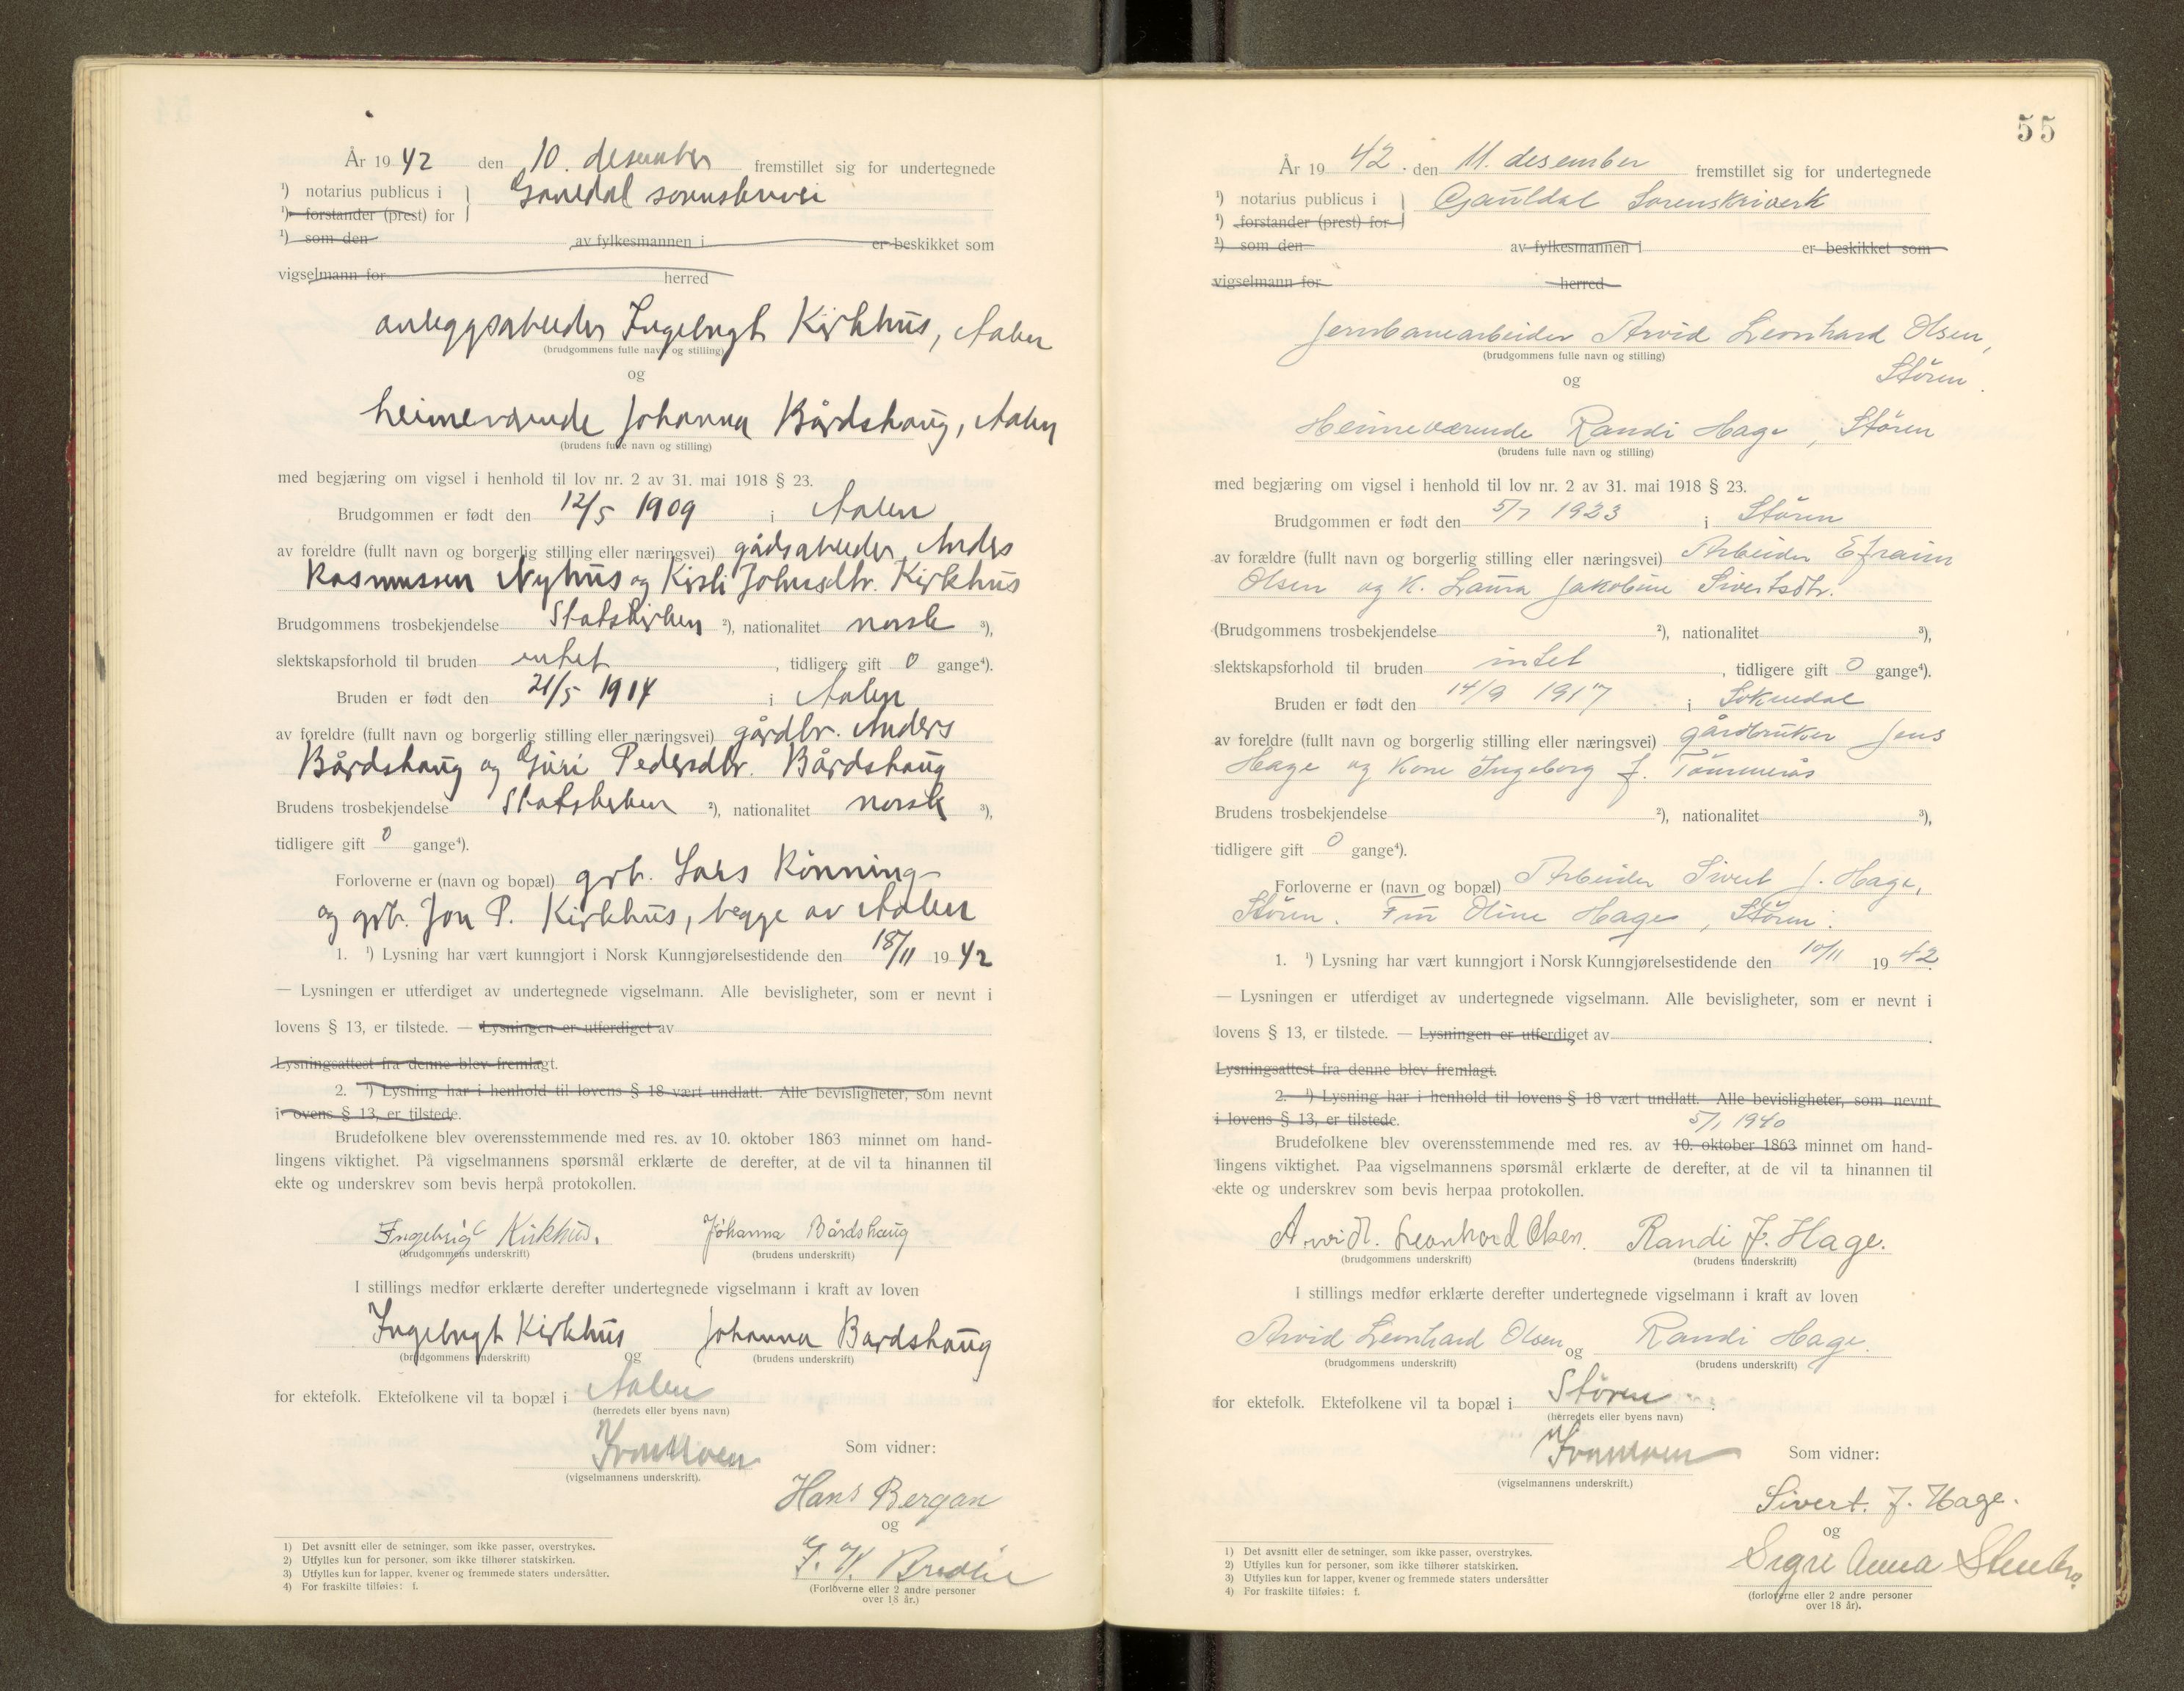 År 19 42 den 10. desember fremstillet sig for undertegnede
¹) notarius publicus i
¹) forstander (prest) for
¹) som den av fylkesmannen i er beskikket som
vigselmann for herred
anleggsarbeider Ingebrigt Kirkhus, Aalen
(brudgommens fulle navn og stilling)
og
heimeværende Johanna Bårdshaug, Aalen
(brudens fulle navn og stilling)
med begjæring om vigsel i henhold til lov nr. 2 av 31. mai 1918 § 23.
Brudgommen er født den 12/5 1909 i Aalen
av foreldre (fullt navn og borgerlig stilling eller næringsvei) Anders
Rasmussen Nyhus og Kirsti Johnsdtr. Kirkhus
Brudgommens trosbekjendelse Statskirken ²), nationalitet norsk ³),
slektskapsforhold til bruden intet, tidligere gift 0 gange⁴).
Bruden er født den 21/5 1914 i Aalen
av foreldre (fullt navn og borgerlig stilling eller næringsvei) gårdbr. Anders
Bårdshaug og Guri Pedersdtr. Bårdshaug
Brudens trosbekjendelse Statskirken ²), nationalitet norsk ³),
tidligere gift 0 gange⁴).
Forloverne er (navn og bopæl) grb. Lars Rønning
og grb. Jon P. Kirkhus, begge av Aalen
1. ¹) Lysning har vært kunngjort i Norsk Kunngjørelsestidende den 18/11 19 42
— Lysningen er utferdiget av undertegnede vigselmann. Alle bevisligheter, som er nevnt i
lovens § 13, er tilstede. — Lysningen er utferdiget av
Lysningsattest fra denne blev fremlagt.
2. ¹) Lysning har i henhold til lovens § 18 vært undlatt. Alle bevisligheter, som nevnt
i ovens § 13, er tilstede.
Brudefolkene blev overensstemmende med res. av 10. oktober 1863 minnet om hand-
lingens viktighet. På vigselmannens spørsmål erklærte de derefter, at de vil ta hinannen til
ekte og underskrev som bevis herpå protokollen.
Ingebrigt Kirkhus. Johanna Bårdshaug
(brudgommens underskrift) (brudens underskrift)
I stillings medfør erklærte derefter undertegnede vigselmann i kraft av loven
Ingebrigt Kirkhus og Johanna Bardshaug
(brudgommens underskrift) (brudens underskrift)
for ektefolk. Ektefolkene vil ta bopæl i Aalen
(herredets eller byens navn)
(vigselmannens underskrift).
Som vidner:
Hans Bergan
og
(Forloverne eller 2 andre personer
over 18 år.)
1) Det avsnitt eller de setninger, som ikke passer, overstrykes.
2) Utfylles kun for personer, som ikke tilhører statskirken.
3) Utfylles kun for lapper, kvener og fremmede staters undersåtter.
4) For fraskilte tilføies: f.
55
År 19 42. den 11. desember fremstillet sig for undertegnede
¹) notarius publicus i Gauldal Sorenskriverk
¹) forstander (prest) for
¹) som den av fylkesmannen i er beskikket som
vigselmann for herred
Jernbanearbeider Arvid Leonhard Olsen,
(brudgommens fulle navn og stilling)
og Stören.
Heimeværende Randi Hage, Stören
(brudens fulle navn og stilling)
med begjæring om vigsel i henhold til lov nr. 2 av 31. mai 1918 § 23.
Brudgommen er født den 5/7 1923 i Stören
av forældre (fullt navn og borgerlig stilling eller næringsvei) Arbeider Efraim
Olsen og K. Laura Jakobine Sivertsdtr.
(Brudgommens trosbekjendelse ²), nationalitet ³),
slektskapsforhold til bruden intet, tidligere gift 0 gange⁴).
Bruden er født den 14/9 1917 i Soknedal
av foreldre (fullt navn og borgerlig stilling eller næringsvei) gårdbruker Jens
Hage og Kone Ingeborg J. Tömmerås
Brudens trosbekjendelse ²), nationalitet ³),
tidligere gift 0 gange⁴).
Forloverne er (navn og bopæl) Arbeider Sivert J. Hage,
Stören. Oline Hage, Stören.
1. ¹) Lysning har vært kunngjort i Norsk Kunngjørelsestidende den 10/11 19 42.
— Lysningen er utferdiget av undertegnede vigselmann. Alle bevisligheter, som er nevnt i
lovens § 13, er tilstede. — Lysningen er utferdiget av
Lysningsattest fra denne blev fremlagt.
2. ¹) Lysning har i henhold til lovens § 18 vært undlatt. Alle bevisligheter, som nevnt
i lovens § 13, er tilstede.
5/1 1940
Brudefolkene blev overensstemmende med res. av 10. oktober 1863 minnet om hand-
lingens viktighet. Paa vigselmannens spørsmål erklærte de derefter, at de vil ta hinannen til
ekte og underskrev som bevis herpaa protokollen.
Arvid. Leonhard Olsen. Randi J. Hage.
(brudgommens underskrift) (brudens underskrift)
I stillings medfør erklærte derefter undertegnede vigselmann i kraft av loven
Arvid Leonhard Olsen og Randi Hage.
(brudgommens underskrift) (brudens underskrift)
for ektefolk. Ektefolkene vil ta bopæl i Stören
(herredets eller byens navn)
(vigselmannens underskrift.)
Som vidner:
Sivert. J. Hage.
og
(forloverne eller 2 andre personer
over 18 år).
1) Det avsnitt eller de setninger, som ikke passer, overstrykes.
2) Utfylles kun for personer, som ikke tilhører statskirken.
3) Utfylles kun for lapper, kvener og fremmede staters undersåtter
4) For fraskilte tilføies: f.